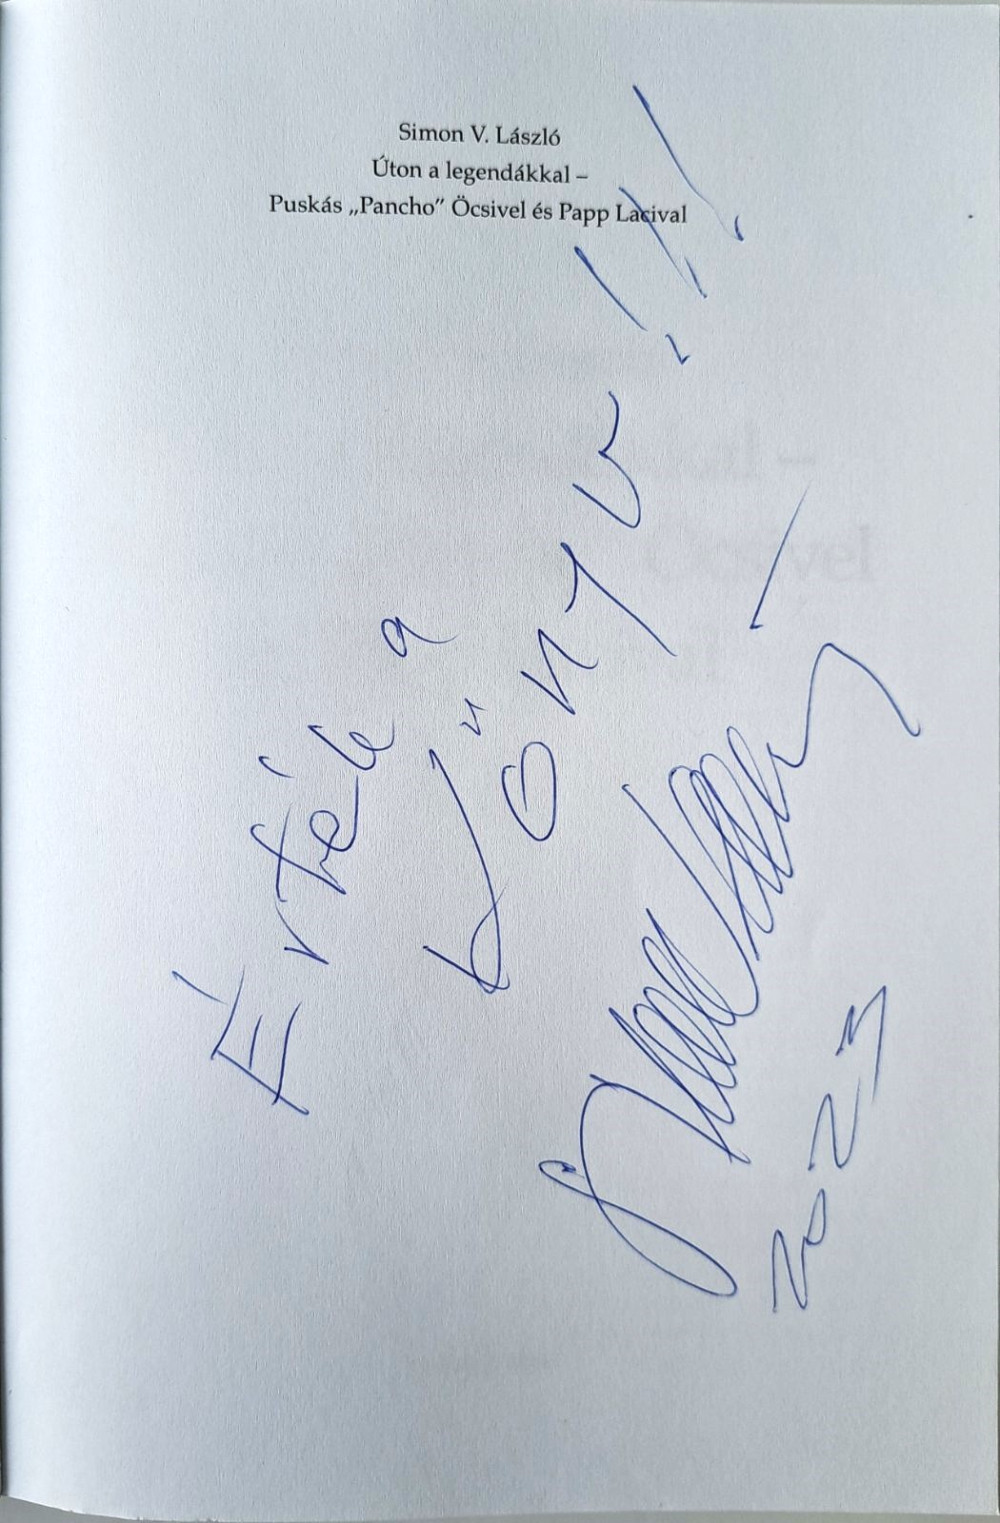 Simon V. László
Úton a legendákkal –
Puskás „Pancho” Öcsivel és Papp Lacival
Érték a
könyv!!!
2023